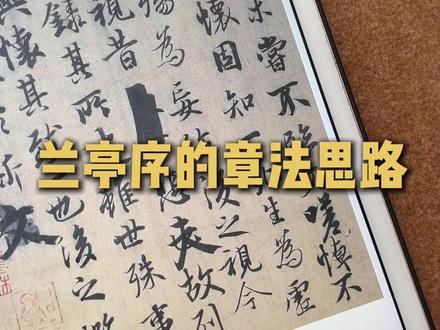 兰亭序的章法思路
嘗不嗟悼不
懷固知生為虛
殤為妄之視今
視昔悲夫故列
錄其所雖世殊事
興懷其也後之
文